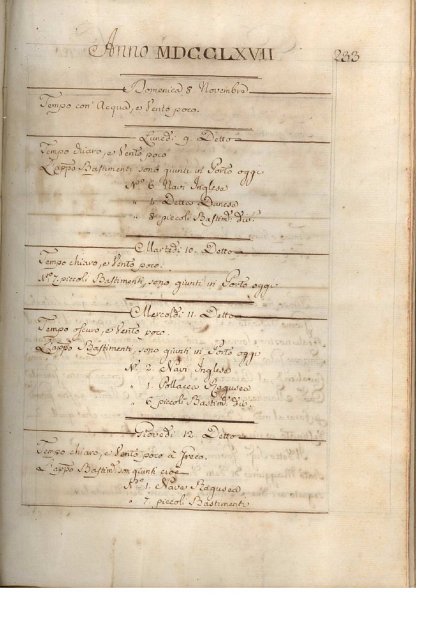 Anno MDCCLXVII 233
Domenica 8 Novembre
Tempo con Acqua, e Vento poco.
Lunedì 9. Detto
Tempo chiaro, e Vento poco
L'appo Bastimenti sono giunti in Porto oggi
N.º 6 Navi Inglese
" 4 Dette Danese
" 8 piccoli Bastim.ti div.i
Martedì 10. Detto
Tempo chiaro, e Vento poco.
N.º 7. piccoli Bastimenti, sono giunti in Porto oggi
Mercoldì 11. Detto
Tempo oscuro, e Vento poco.
L'appo Bastimenti, sono giunti in Porto oggi
N.º 2 Navi Inglese
" 1 Pollacca Ragusea
" 6 piccoli Bastim.ti div.i
Giovedì 12. Detto
Tempo chiaro, e Vento poco à Greco.
L'appo Bastim.ti son giunti cioè
N.º 1. Nave Ragusea
" 7 piccoli Bastimenti